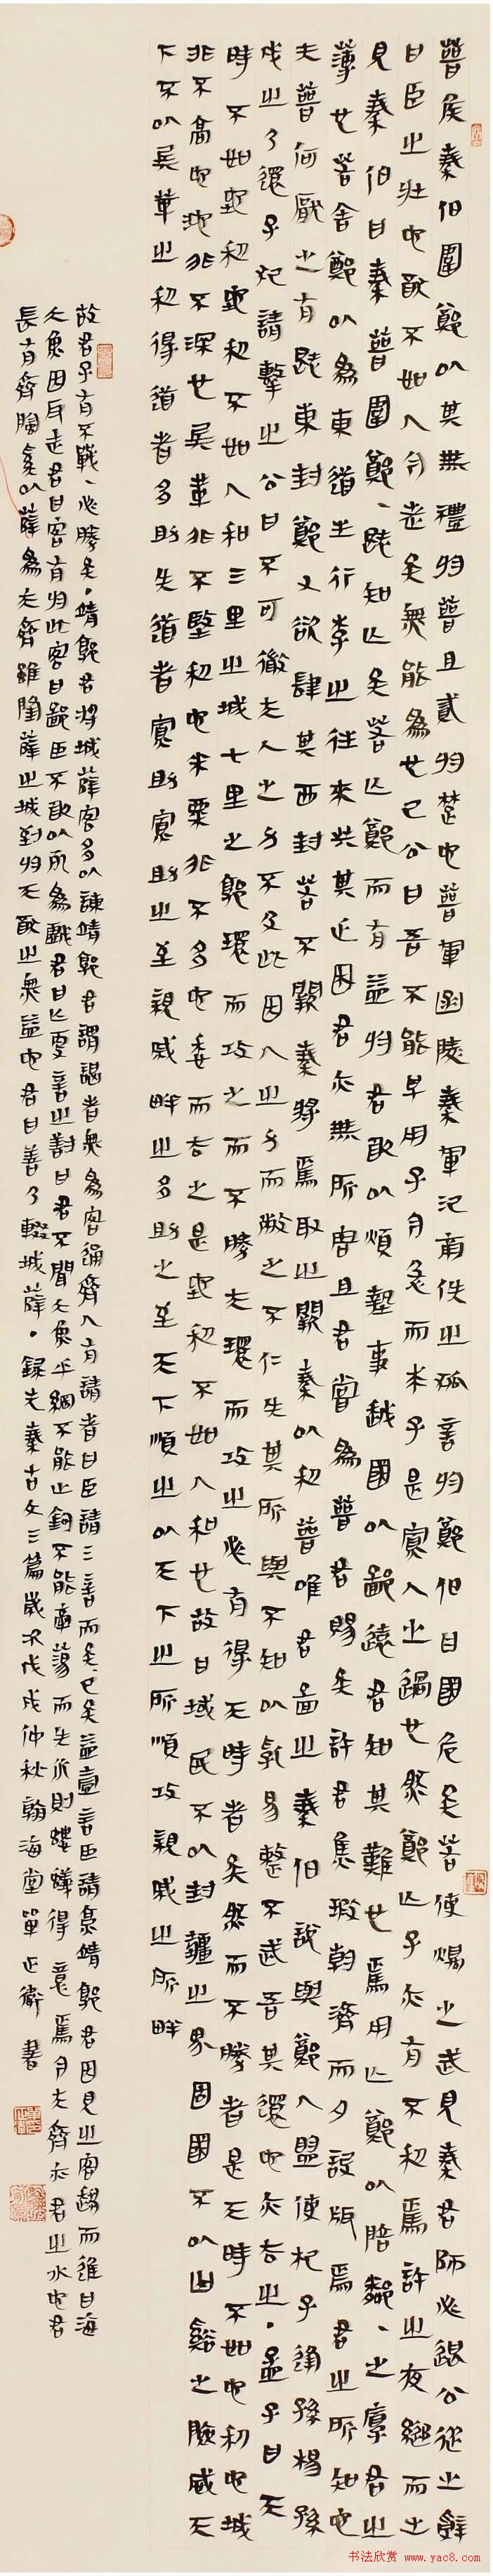 晉侯秦伯圍鄭以其無禮於晉且貳於楚也晉軍函陵秦軍氾南佚之狐言於鄭伯曰國危矣若使燭之武見秦君師必退公從之辭
曰臣之壯也猷不如人今老矣無能為也已公曰吾不能早用子今急而求子是寡人之過也然鄭亡子亦有不利焉許之夜縋而出
見秦伯曰秦晉圍鄭、既知亡矣若亡鄭而有益於君敢以煩執事越國以鄙遠君知其難也焉用亡鄭以陪鄰、之厚君之
薄也若舍鄭以為東道主行李之往來共其乏困君亦無所害且君嘗為晉君賜矣許君焦瑕朝濟而夕設版焉君之所知也
夫晉何厭之有既東封鄭又欲肆其西封若不闕秦將焉取之闕秦以利晉唯君圖之秦伯說與鄭人盟使杞子逢孫楊孫
戍之乃還子犯請擊之公曰不可微夫人之力不及此因人之力而敝之不仁失其所與不知以亂易整不武吾其還也亦去之。孟子曰天
時不如地利地利不如人和三里之城七里之郭環而攻之而不勝夫環而攻之必有得天時者矣然而不勝者是天時不如地利也城
非不高也池非不深也兵革非不堅利也米粟非不多也委而去之是地利不如人和也故曰域民不以封疆之界固國不以山谿之險威天
下不以兵革之利得道者多助失道者寡助寡助之至親戚畔之多助之至天下順之以天下之所順攻親戚之所畔
故君子有不戰、必勝矣。靖郭君將城薛客多以諫靖郭君謂謁者無為客通齊人有請者曰臣請三言而矣、已矣益壹言臣請烹靖郭君因見之客趨而進曰海
大魚因反走君曰客有於此客曰鄙臣不敢以死為戲君曰亡更言之對曰君不聞大魚乎網不能止鉤不能牽蕩而失水則螻蟻得意焉今夫齊亦君之水也君
長有齊陶奚以薛為夫齊雖隆薛之城到於天猷之無益也君曰善乃輟城薛。錄先秦古文三篇歲次戊戌仲秋翰海堂單正衛書
书法欣赏 www.yac8.com